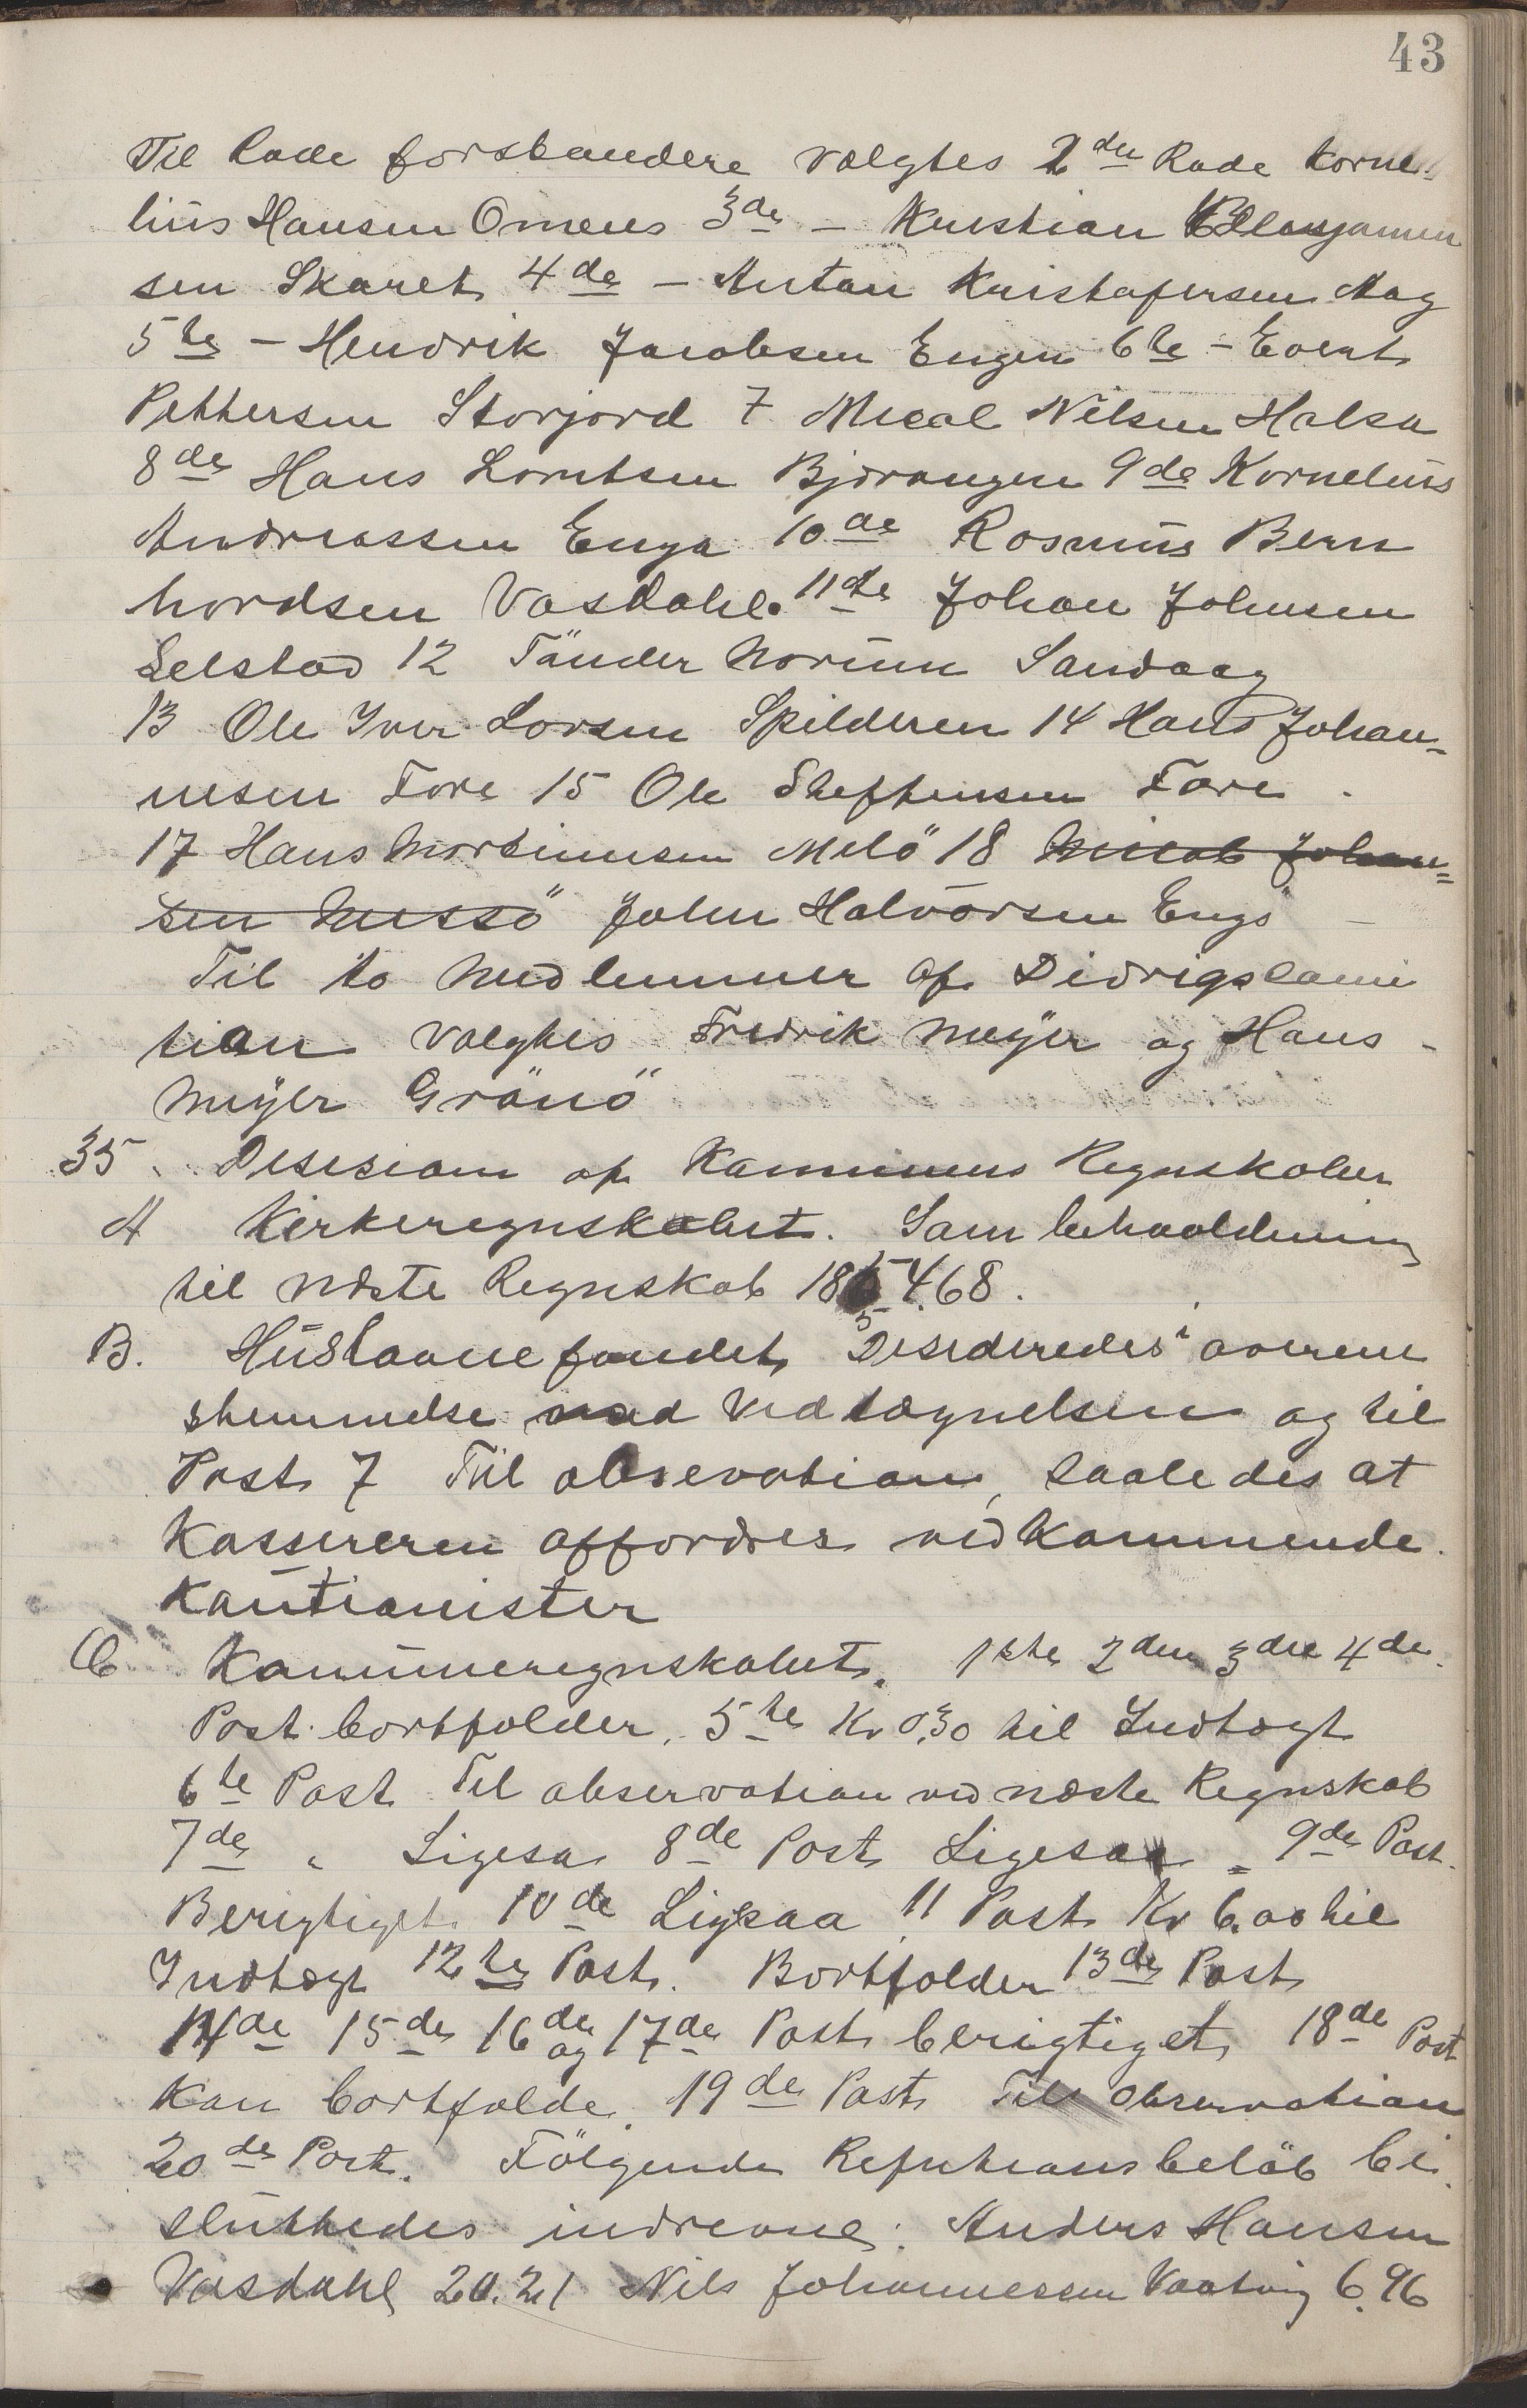 43
Til Rode forstandere valgtes 2den Rode Korne-
lius Hansen Omenes 3de - Kristian Benjamin
sen Skaret 4de - Antan Kristofersen Aag
5te - Hendrik Jacobsen Engen 6te - Evert
Pettersen Storjord 7 Mical Nilsen Halsa
8de Hans Lorntsen Bjærangen 9de Kornelius
Andreassen Enga 10de Rasmus Bern
hordsen Vasdahl. 11te Johan Johnsen
Selstad 12 Tånder Norum Sandaag
13 Ole Iver Larsen Spilderen 14 Hans Johan-
nesen Fore 15 Ole Steffensen Fore.
17 Hans Mortinusen Melö 18 Mical Johan=
sen Messö John Halvorsen Engö -
Til to Medlemmer af Didrigscomi
tian valgtes Fredrik Meÿer og Hans -
Meÿer Grönö
35. Desision af Kommunens Regnskaber
A Kirkeregnskabet. Som behaaldning
til næste Regnskab 4.68.
B. Huslaanefondet Desideredes i averens
stemmelse med Vedtægnelsen og til
Post 7 Til observation, saaledes at
Kassereren affordres vedkommende
Kautionister
C Kommuneregnskabet. 1ste 2den 3die 4de
Post bortfalder. 5te Kr 0.30 til Indtægt
6te Post Til observation ved næste Regnskab
7de " Ligesaa 8de Post Ligesaa = 9de Post
Berigtiget 10de Ligesaa 11 Post Kr 6.00 til
Indtægt 12te Post. Bortfalder 13de Post
14de 15de 16de og 17de Post berigtiget 18de Post
Kan bortfalde. 19de Post Til Observation
20de Post. Fölgende Refutionsbelöb be
sluttedes inddrevne: Anders Hansen
Vasdahl 20.21 Nils Johannessen Vaatvig 6.96